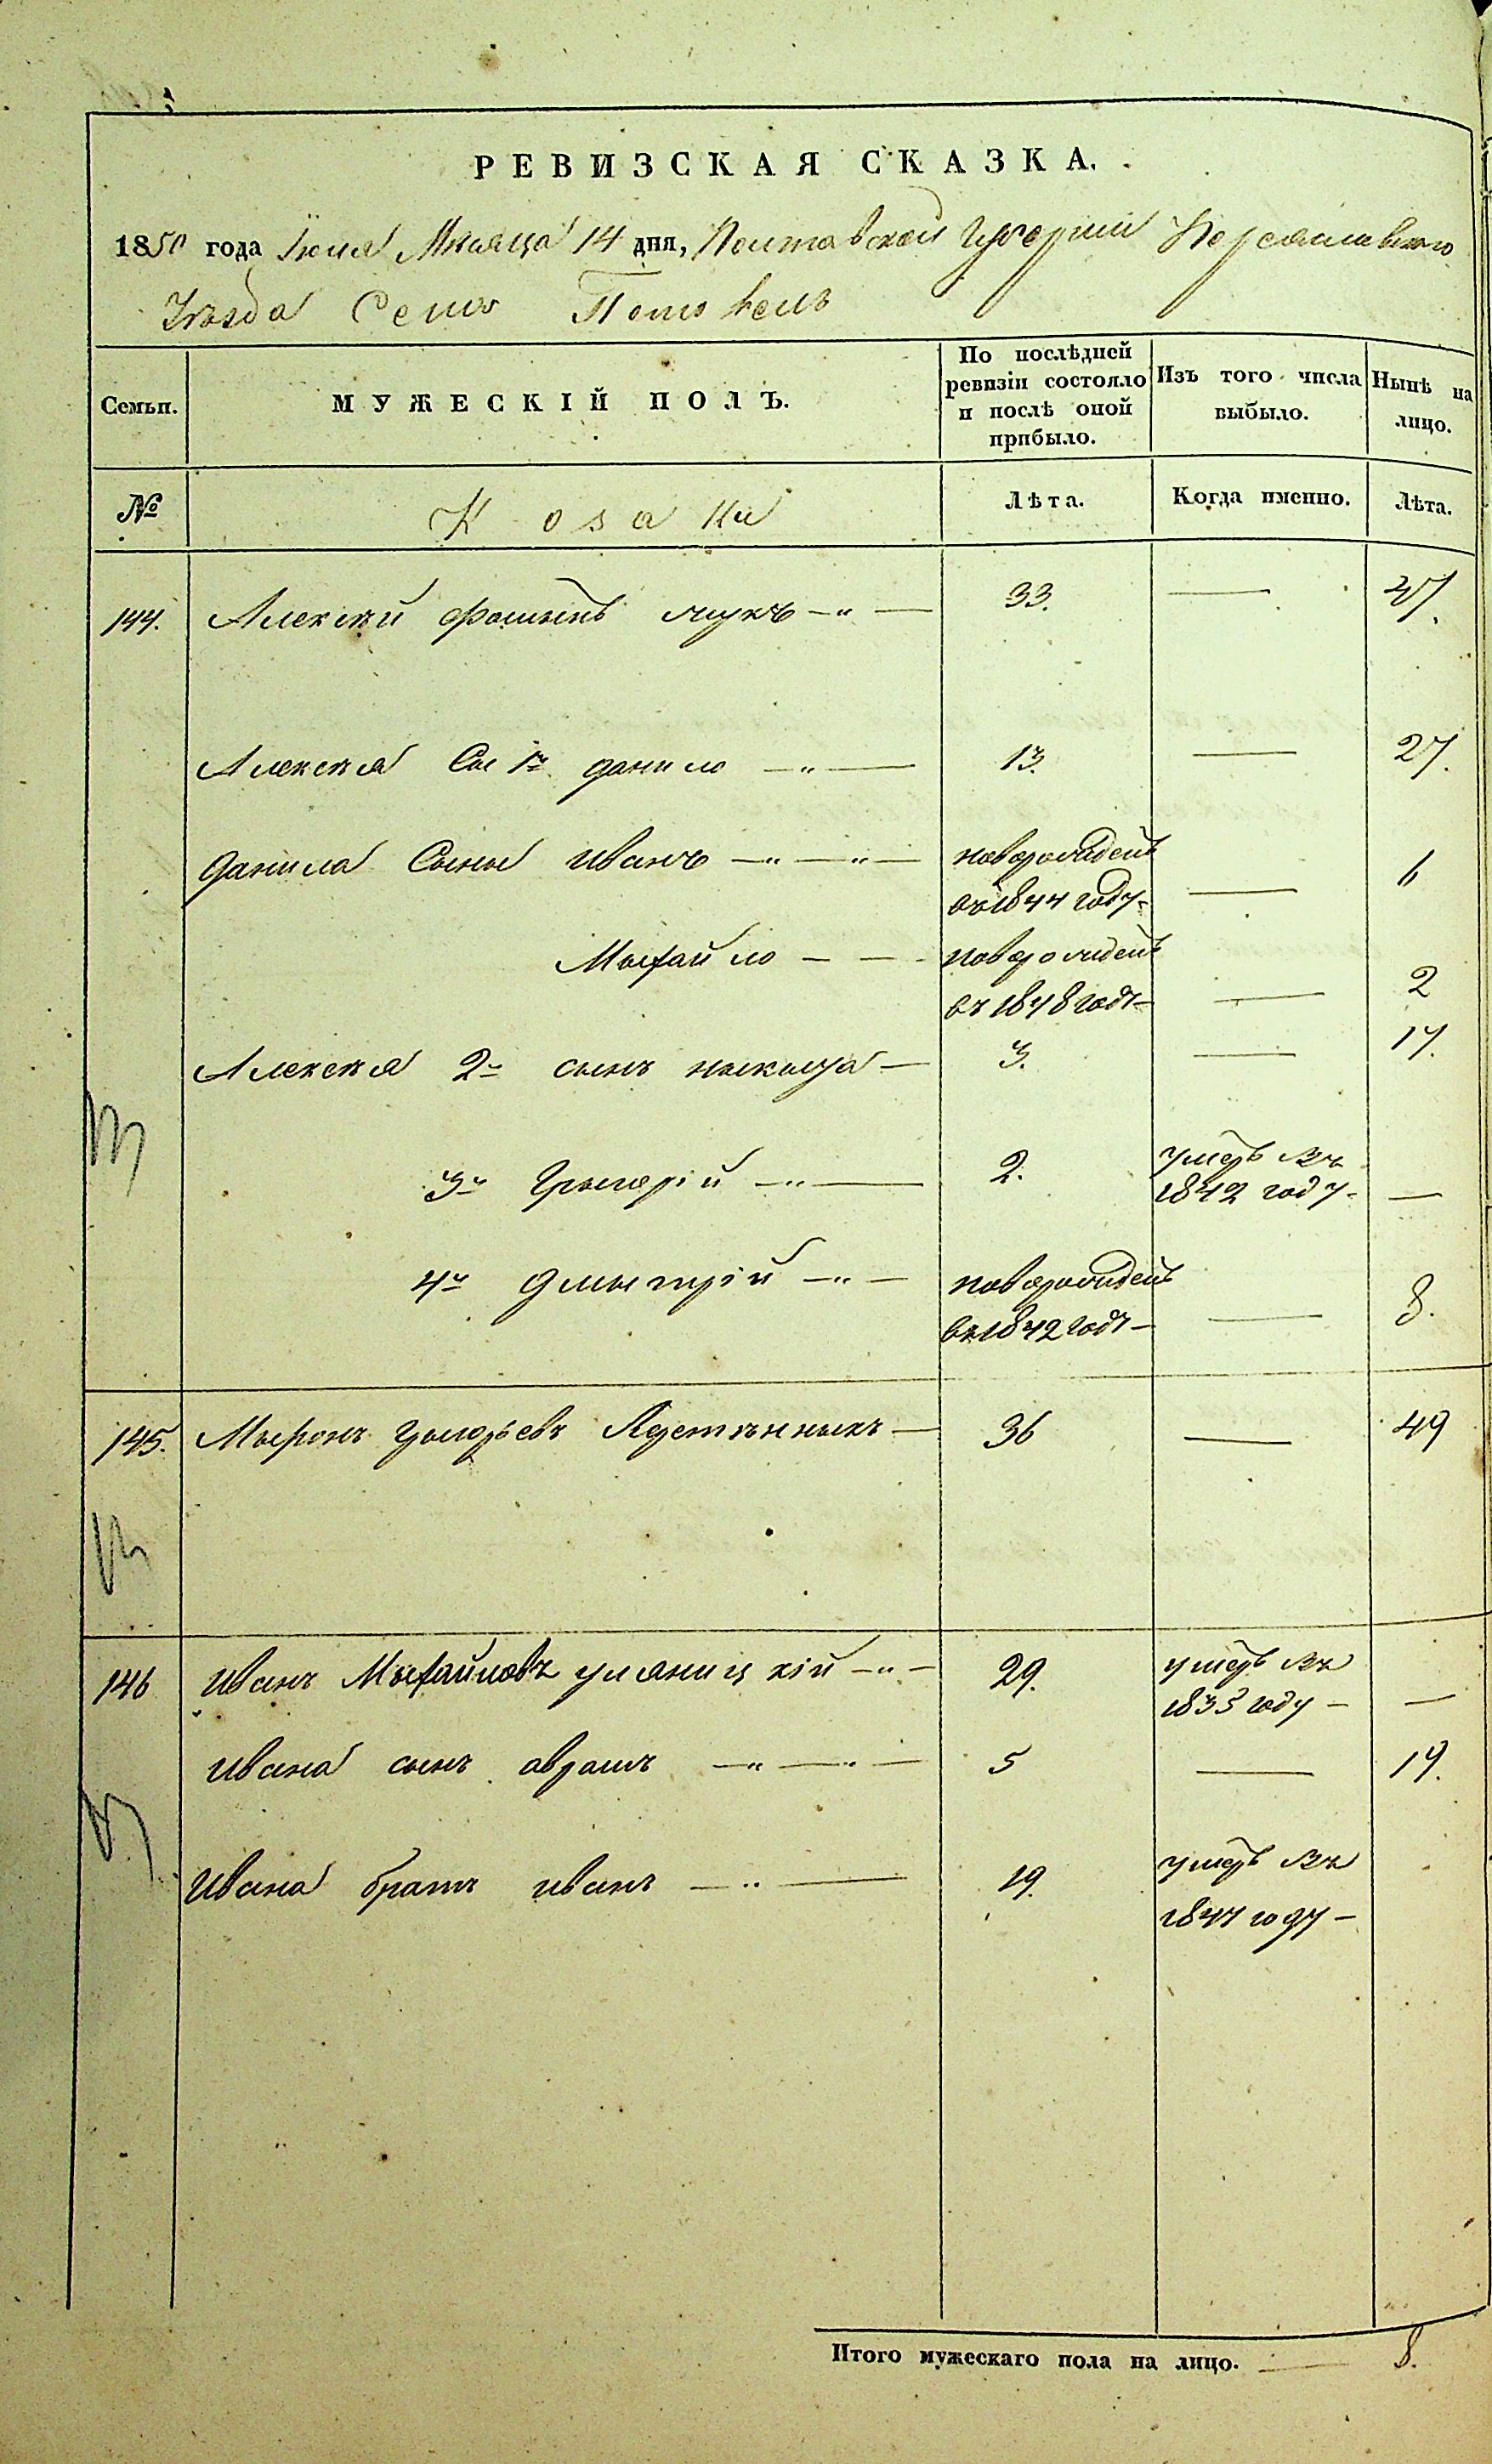 РЕВИЗСКАЯ СКАЗКА.
1850 года Іюня Мѣсяца 14 дня, Полтавской Губерніи Переяславскаго
Уѣзда Села
Семьи. МУЖЕСКІЙ ПОЛЪ. По послѣдней ревизіи состояло и послѣ оной прибыло. Изъ того числа выбыло. Нынѣ на лицо.
№ Козаки Лѣта. Когда именно. Лѣта.
144. Алексѣй Фоминъ — " — 33. — 47.
Алексѣя Сы 1й данило — " — 13. — 27.
данила Сыны иванъ — " — " — новорожденъ
въ 1844 году — — 6
Мыхайло — — новорожденъ
въ 1848 годъ — — 2
Алексѣя 2й сынъ ныкыта — 3. — 17.
3й Грыгорій — " — 2. умеръ въ
1842 году — —
4й дмытрій — " — новорожденъ
въ 1842 годъ — — 8.
145. Мыронъ Грыгорьевъ — 36 — 49
146 иванъ Мыхайловъ — " — 29. умеръ въ
1835 году — —
ивана сынъ аврамъ — " — " — 5 — 19.
ивана братъ иванъ — " — 19. умеръ въ
1847 году —
Итого мужескаго пола на лицо. — 8.